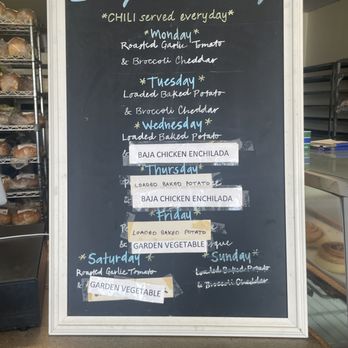 *CHILI served everyday*
*Monday*
Roasted Garlic Tomato
& Broccoli Cheddar
*Tuesday*
Loaded Baked Potato
& Broccoli Cheddar
*Wednesday*
Loaded Baked Potato
BAJA CHICKEN ENCHILADA
*Thursday*
LOADED BAKED POTATO
BAJA CHICKEN ENCHILADA
*Friday*
LOADED BAKED POTATO
& GARDEN VEGETABLE
*Saturday*
Roasted Garlic Tomato
& GARDEN VEGETABLE
*Sunday*
Loaded Baked Potato
& Broccoli Cheddar